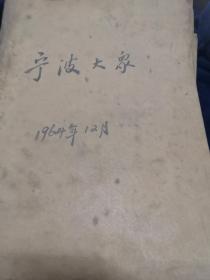 宁波大众
1964年12月